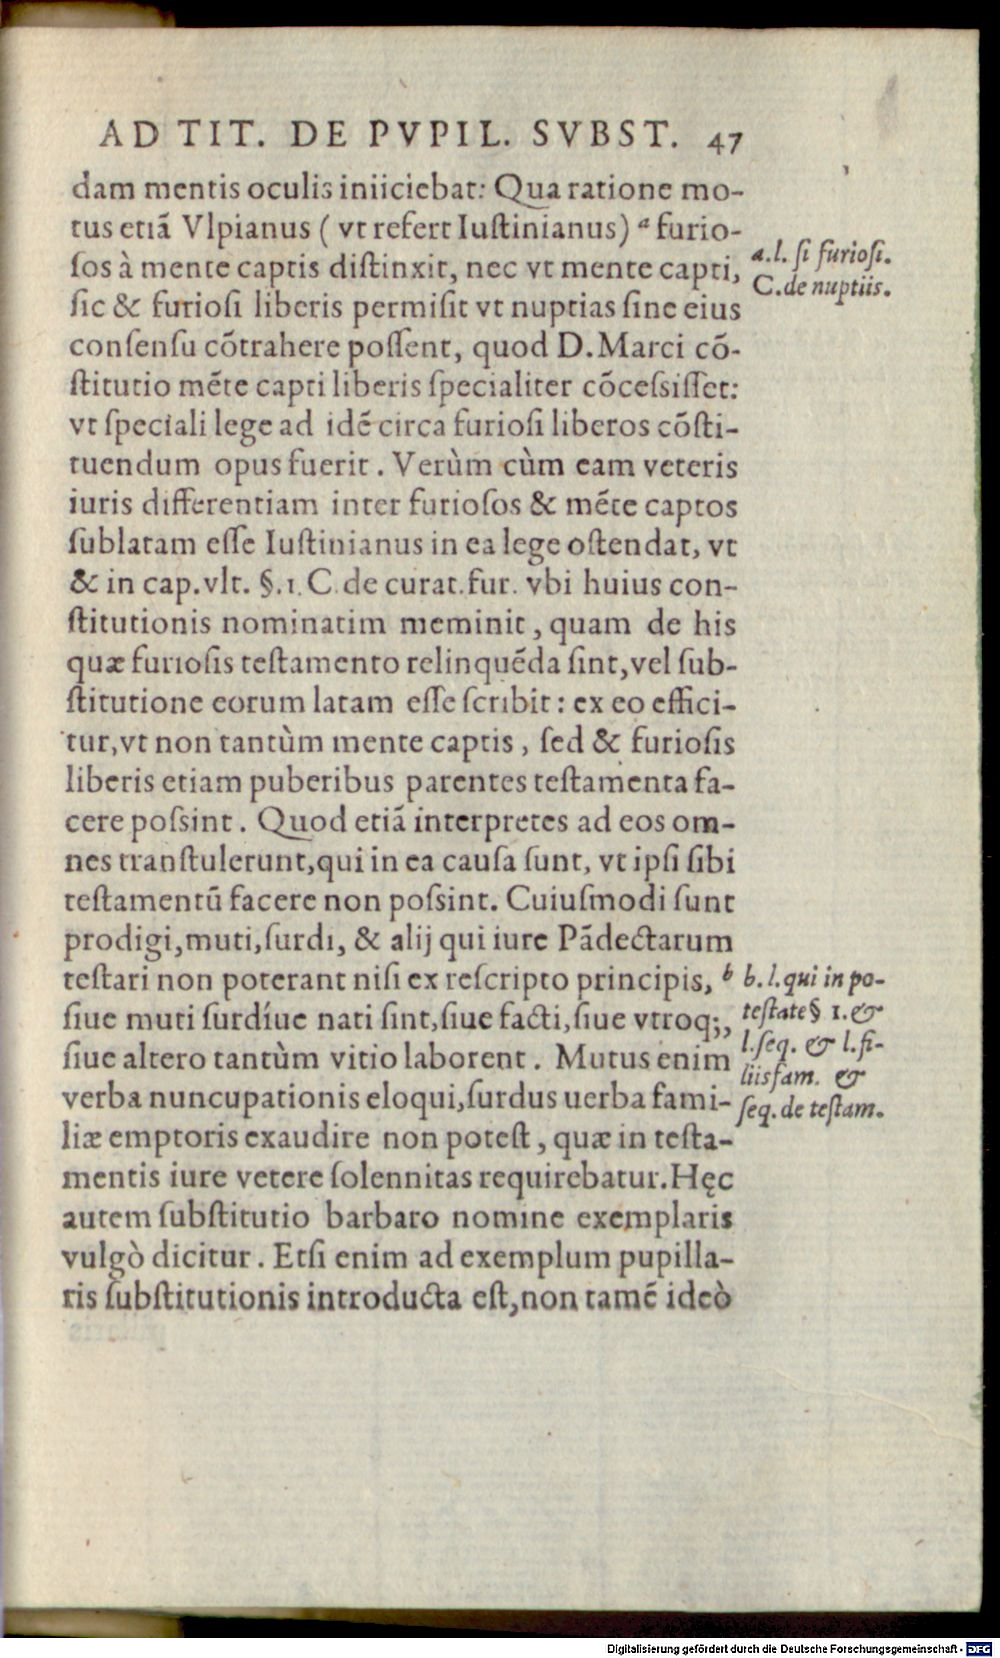 AD TIT. DE PVPIL. SVBST. 47
dam mentis oculis iniiciebat: Qua ratione mo-
tus etiã Vlpianus ( vt refert Iustinianus) a furio-
sos à mente captis distinxit, nec vt mente capti,
sic & furiosi liberis permisit vt nuptias sine eius
consensu cõtrahere possent, quod D.Marci cõ-
stitutio mẽte capti liberis specialiter cõcessisset:
vt speciali lege ad idẽ circa furiosi liberos cõsti-
tuendum opus fuerit. Verùm cùm eam veteris
iuris differentiam inter furiosos & mẽte captos
sublatam esse Iustinianus in ea lege ostendat, vt
& in cap.vlt. §.1. C.de curat.fur. vbi huius con-
stitutionis nominatim meminit, quam de his
quæ furiosis testamento relinquẽda sint, vel sub-
stitutione eorum latam esse scribit: ex eo effici-
tur, vt non tantùm mente captis, sed & furiosis
liberis etiam puberibus parentes testamenta fa-
cere possint. Quod etiã interpretes ad eos om-
nes transtulerunt, qui in ea causa sunt, vt ipsi sibi
testamentũ facere non possint. Cuiusmodi sunt
prodigi, muti, surdi, & alij qui iure Pãdectarum
testari non poterant nisi ex rescripto principis, b
siue muti surdíue nati sint, siue facti, siue vtroq;,
siue altero tantùm vitio laborent. Mutus enim
verba nuncupationis eloqui, surdus uerba fami-
liæ emptoris exaudire non potest, quæ in testa-
mentis iure vetere solennitas requirebatur. Hęc
autem substitutio barbaro nomine exemplaris
vulgò dicitur. Etsi enim ad exemplum pupilla-
ris substitutionis introducta est, non tamẽ ideò
a.l. si furiosi.
C.de nuptiis.
b.l.qui in po-
testate § 1.&
l.seq. & l.fi-
liisfam. &
seq. de testam.
Digitalisierung gefördert durch die Deutsche Forschungsgemeinschaft - DFG